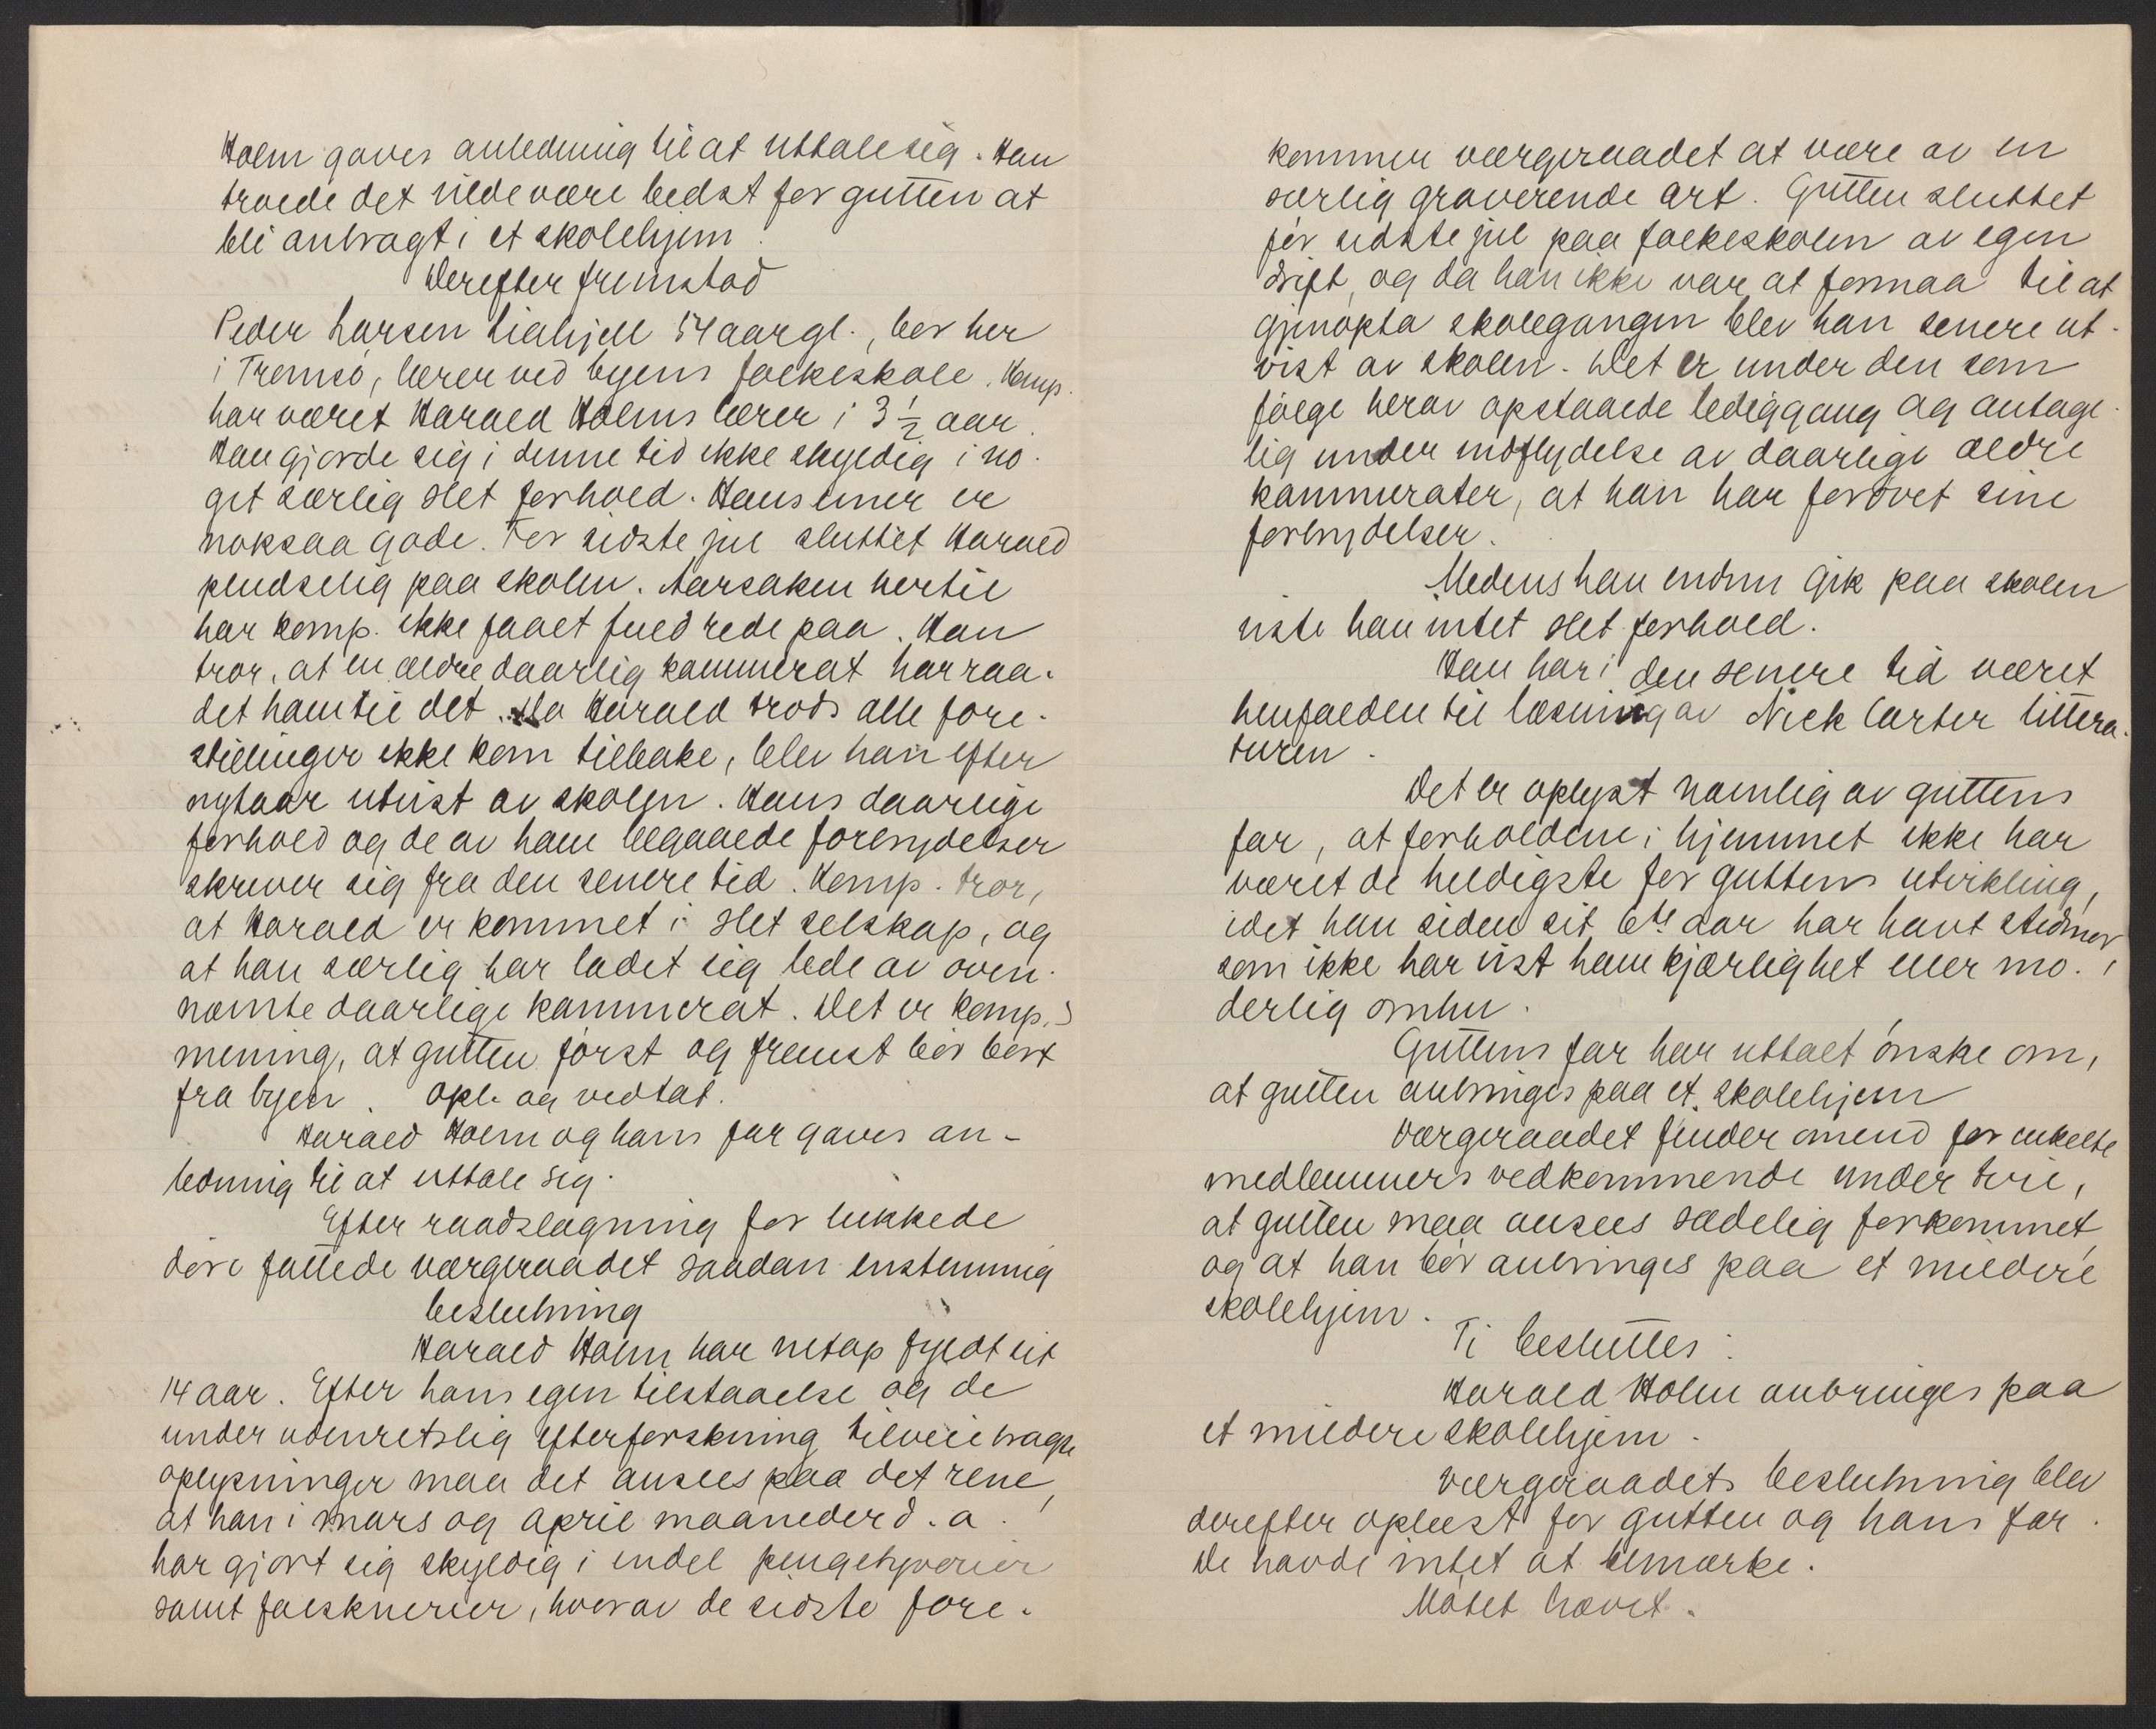 Holm gaves anledning til at uttale sig. Han
troede det vilde være bedst for gutten at
bli anbragt i et skolehjem.
Derefter fremstod
Peder Larsen Liahjell 54 aar gl., bor her
i Tromsö, lærer ved byens folkeskole. Komp.
har været Harald Holms lærer i 3 ½ aar.
Han gjorde sig i denne tid ikke skyldig i no-
get særlig slet forhold. Hans evner er
noksaa gode. För sidste jul sluttet Harald
pludselig paa skolen. Aarsaken hertil
har komp. ikke faaet fuld rede paa. Han
tror, at en ældre daarlig kammerat har raa-
det ham til det. Da Harald trods alle fore-
stillinger ikke kom tilbake, blev han efter
nytaar utvist av skolen. Hans daarlige
forhold og de av ham begaaede forbrydelser
skriver sig fra den senere tid. Komp. tror,
at Harald er kommet i slet selskap, og
at han særlig har ladet sig lede av oven-
nævnte daarlige kammerat. Det er komp.s
mening, at gutten först og fremst bör bort
fra byen. Opl. og vedtat.
Harald Holm og hans far gaves an-
ledning til at uttale sig.
Efter raadslagning for lukkede
döre fattede værgeraadet saadan enstemmig
beslutning
Harald Holm har netop fyldt sit
14 aar. Efter hans egen tilstaaelse og de
under utenretslig efterforskning tilveiebragte
oplysninger maa det ansees paa det rene,
at han i mars og april maaneder d. a.
har gjort sig skyldig i endel pengetyverier
samt falsknerier, hvorav de sidste fore-
kommer værgeraadet at være av en
særlig graverende art. Gutten sluttet
för sidste jul paa folkeskolen av egen
drift, og da han ikke var at formaa til at
gjenopta skolegangen blev han senere ut-
vist av skolen. Det er under den som
fölge herav opstaaede lediggang og antage-
lig under indflydelse av daarlige ældre
kammerater, at han har forövet sine
forbrydelser.
Medens han endnu gik paa skolen
viste han intet slet forhold.
Han har i den senere tid været
henfalden til læsning av Nick Carter littera-
turen.
Det er oplyst navnlig av guttens
far, at forholdene i hjemmet ikke har
været de heldigste for guttens utvikling,
idet han siden sit 6te aar har havt stedmor,
som ikke har vist ham kjærlighet eller mo-
derlig omhu.
Guttens far har uttalt önske om,
at gutten anbringes paa et skolehjem
Værgeraadet finder omend for enkelte
medlemmers vedkommende under tvil,
at gutten maa ansees sædelig forkommet
og at han bör anbringes paa et mildere
skolehjem.
Ti besluttes:
Harald Holm anbringes paa
et mildere skolehjem.
Værgeraadets beslutning blev
derefter oplæst for gutten og hans far.
De havde intet at bemærke.
Mötet hævet.